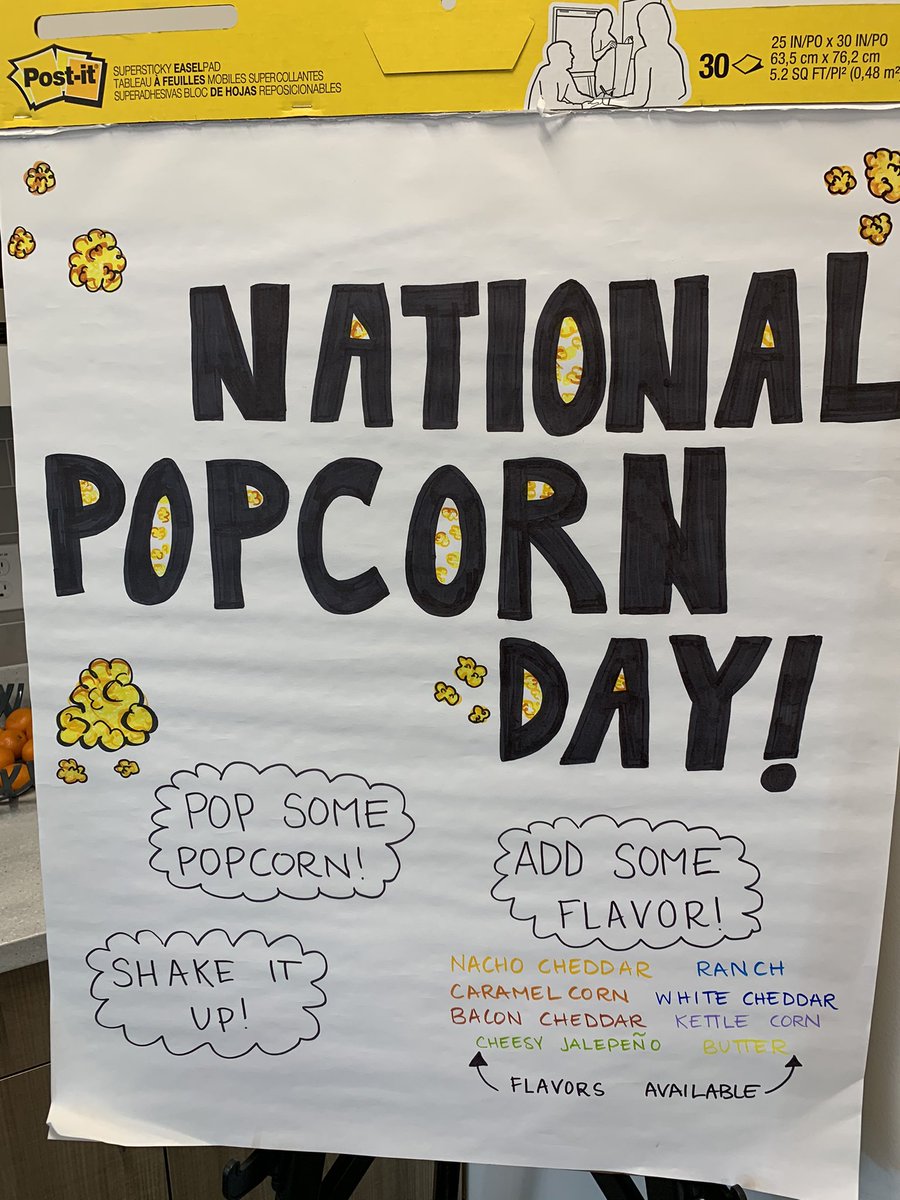 Post-it
SUPERSTICKY EASELPAD
TABLEAU À FEUILLES MOBILES SUPERCOLLANTES
SUPERADHESIVAS BLOC DE HOJAS REPOSICIONABLES
30
25 IN/PO x 30 IN/PO
63,5 cm x 76,2 cm
5.2 SQ FT/PI² (0,48 m²
NATIONAL
POPCORN
DAY!
POP SOME
POPCORN!
SHAKE IT
UP!
ADD SOME
FLAVOR!
NACHO CHEDDAR RANCH
CARAMEL CORN WHITE CHEDDAR
BACON CHEDDAR KETTLE CORN
CHEESY JALEPEÑO BUTTER
FLAVORS AVAILABLE